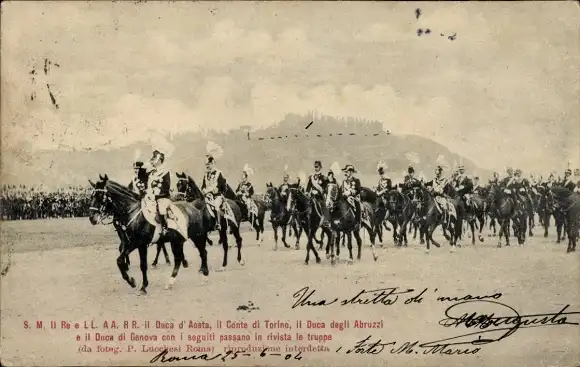 Una stretta di mano
S. M. Il Re e LL. AA. RR. il Duca d'Aosta, il Conte di Torino, il Duca degli Abruzzi
e il Duca di Genova con i seguiti passano in rivista le truppe
(da fotog. P. Lucchesi Roma) riproduzione interdetta
Roma 25-6-04 Forte M. Mario